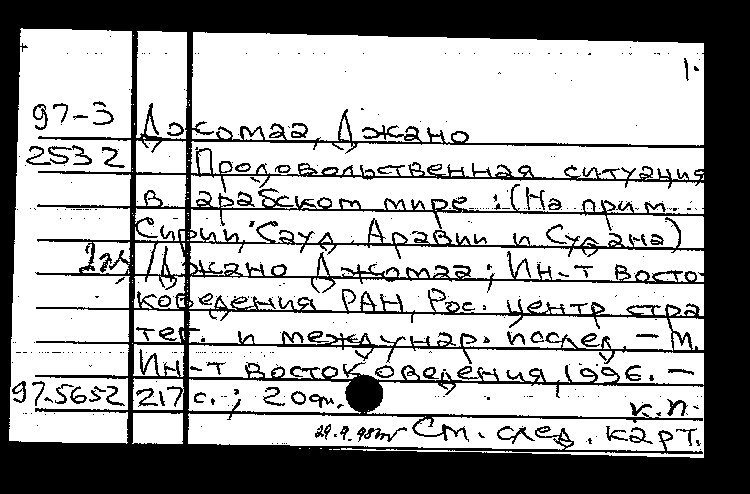 1.
97-3 Джомаа, Джано
2532 Продовольственная ситуация
в арабском мире : (На прим.
Сирии, Сауд. Аравии и Судана)
/Джано Джомаа ; Ин-т восто-
коведения РАН, Рос. центр стра
тег. и междунар. послед. – М.
Ин-т востоковедения, 1996. –
97.5652 217 с. ; 20 см. к.п.
29.9.98 См. след. карт.